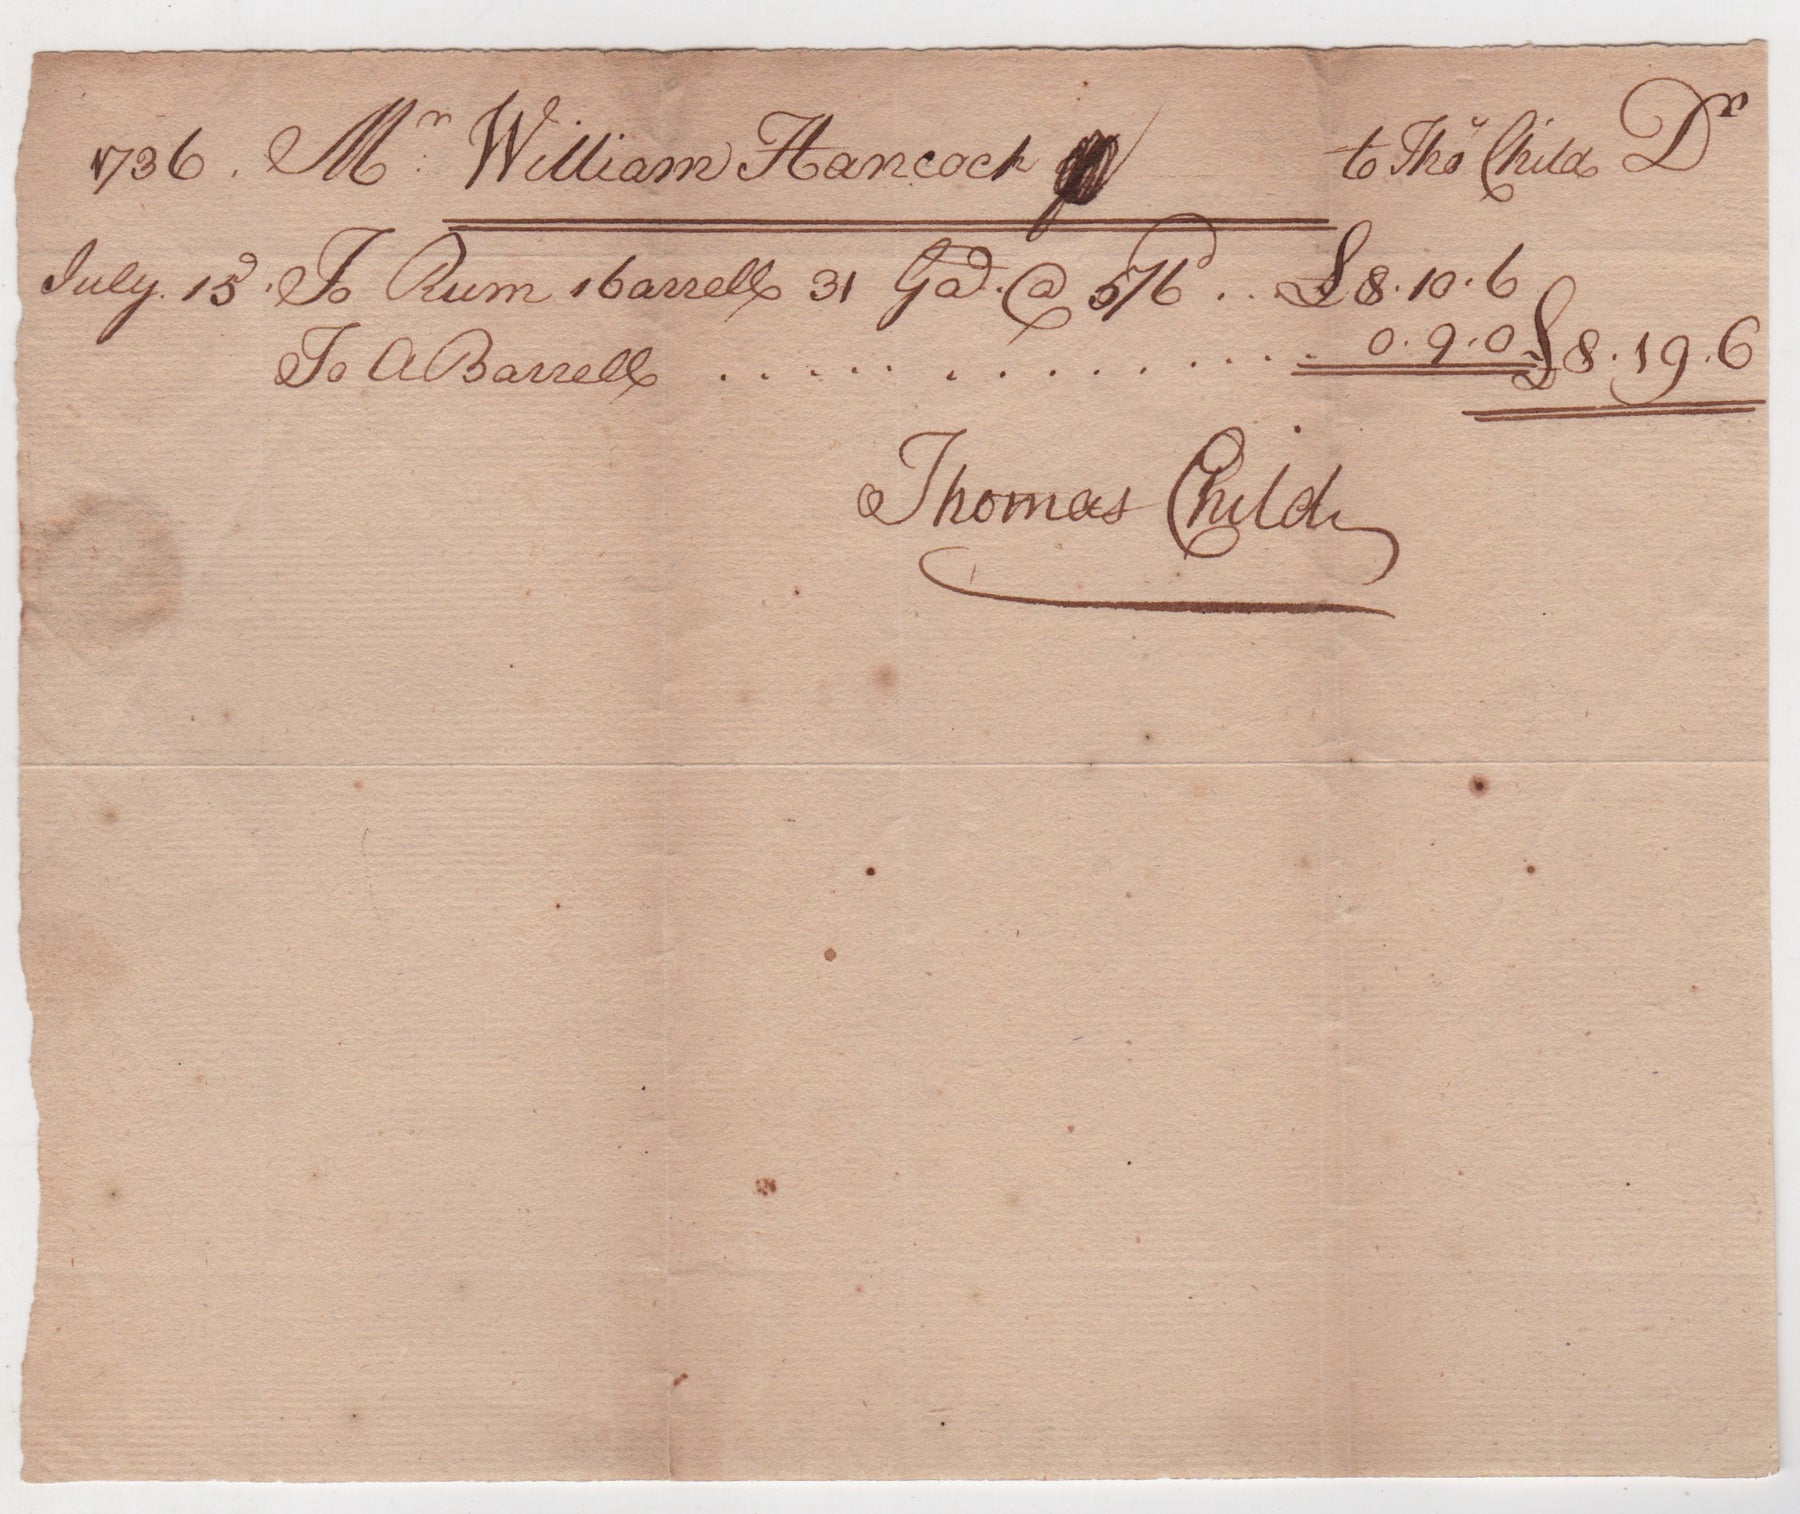 1736. Mr. William Hancock to Thos Child Dr
July. 15. To Rum 1 barrell 31 Gad. @ 5/6d .. £8.10.6
To A Barrell ............. 0.9.0 £8.19.6
Thomas Child